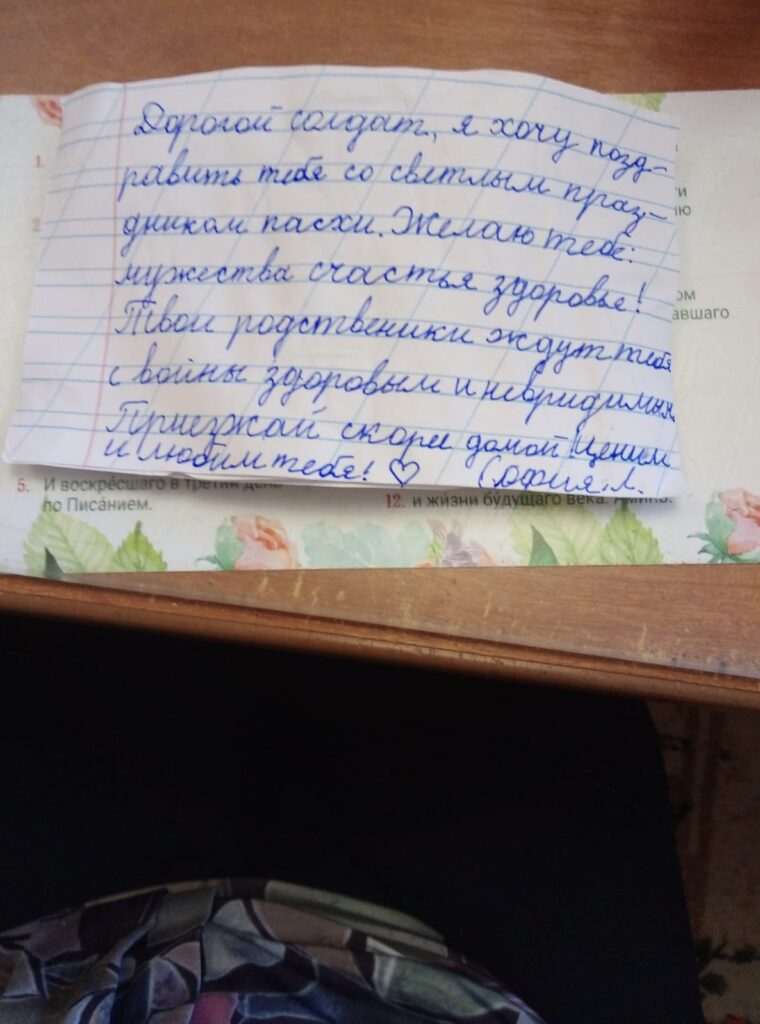 Дорогой солдат, я хочу позд-
равить тебя со светлым праз-
дником пасхи. Желаю тебе:
мужества счастья здоровье!
Твои родственики ждут тебя
с войны здоровым и невридимым
Приезжай скорее домой! Ценим
и любим тебя! ♡ София Л.
1.
ти
ию
ом
авшаго
5. И воскре́сшаго в тре́тий день
по Писа́нием.
12. и жи́зни бу́дущаго ве́ка. Ами́нь.